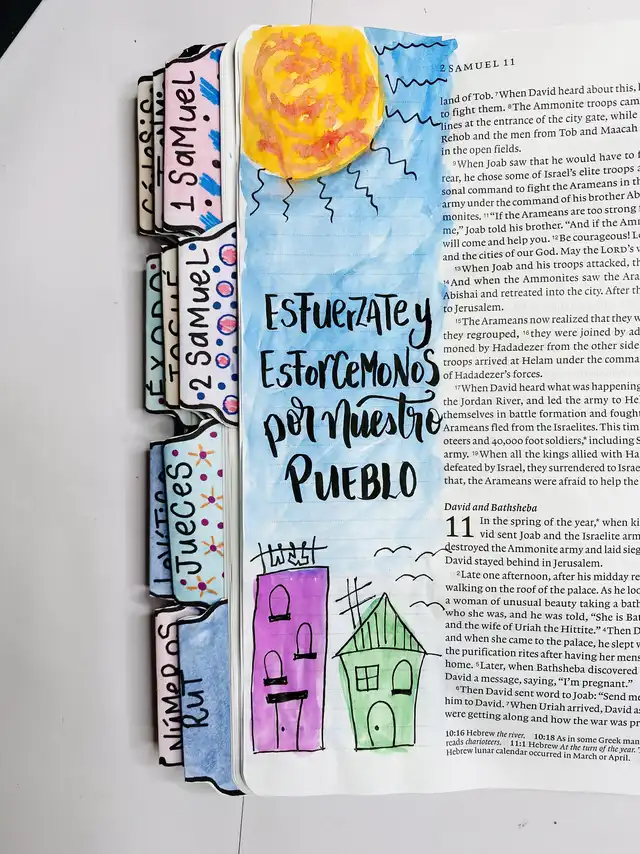 1 SaMuel
ÉXODO
JOSUÉ
2 SaMuel
JUeCeS
NÚMeROS
RUT
EsFuerzATe y
EsForCeMoNos
por nuestro
PUEBLO
2 SAMUEL 11
land of Tob. 7When David heard about this,
to fight them. 8The Ammonite troops cam
lines at the entrance of the city gate, while
Rehob and the men from Tob and Maacah
in the open fields.
9When Joab saw that he would have to f
rear, he chose some of Israel's elite troops a
sonal command to fight the Arameans in th
army under the command of his brother Ab
monites. 11"If the Arameans are too strong
me," Joab told his brother. "And if the Amm
will come and help you. 12Be courageous! Le
and the cities of our God. May the LORD's w
13When Joab and his troops attacked, th
14And when the Ammonites saw the Ara
Abishai and retreated into the city. After th
to Jerusalem.
15The Arameans now realized that they w
they regrouped, 16they were joined by ad
moned by Hadadezer from the other side
troops arrived at Helam under the comma
of Hadadezer's forces.
17When David heard what was happening
the Jordan River, and led the army to He
themselves in battle formation and fough
Arameans fled from the Israelites. This tim
oteers and 40,000 foot soldiers,* including S
army. 19When all the kings allied with Ha
defeated by Israel, they surrendered to Israe
that, the Arameans were afraid to help the
David and Bathsheba
11 In the spring of the year,* when ki
vid sent Joab and the Israelite arm
destroyed the Ammonite army and laid sieg
David stayed behind in Jerusalem.
2Late one afternoon, after his midday re
walking on the roof of the palace. As he loo
a woman of unusual beauty taking a bath
who she was, and he was told, "She is Bat
and the wife of Uriah the Hittite." 4Then D
and when she came to the palace, he slept w
the purification rites after having her mens
home. 5Later, when Bathsheba discovered
David a message, saying, "I'm pregnant."
6Then David sent word to Joab: "Send me
him to David. 7When Uriah arrived, David as
were getting along and how the war was pr
10:16 Hebrew the river. 10:18 As in some Greek man
reads charioteers. 11:1 Hebrew At the turn of the year.
Hebrew lunar calendar occurred in March or April.